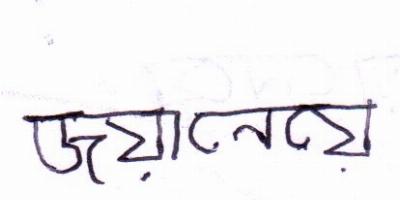 জয়ানেয়ে